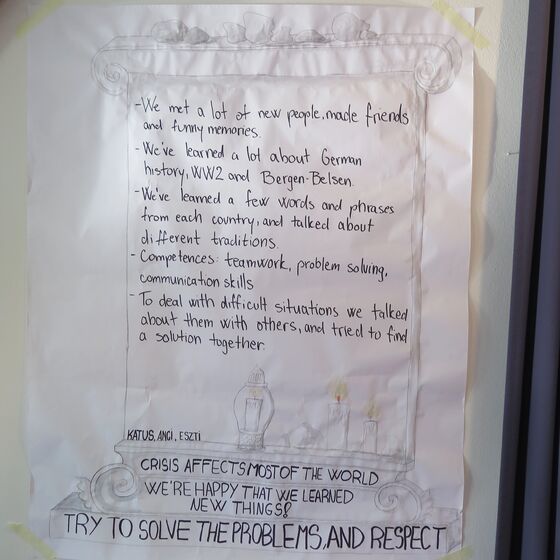 - We met a lot of new people, made friends
and funny memories.
- We've learned a lot about German
history, WW2 and Bergen-Belsen.
- We've learned a few words and phrases
from each country, and talked about
different traditions.
- Competences: teamwork, problem solving,
communication skills
- To deal with difficult situations we talked
about them with others, and tried to find
a solution together.
KATUS, ANGI, ESZTI
CRISIS AFFECTS MOST OF THE WORLD
WE'RE HAPPY THAT WE LEARNED
NEW THINGS!
TRY TO SOLVE THE PROBLEMS, AND RESPECT